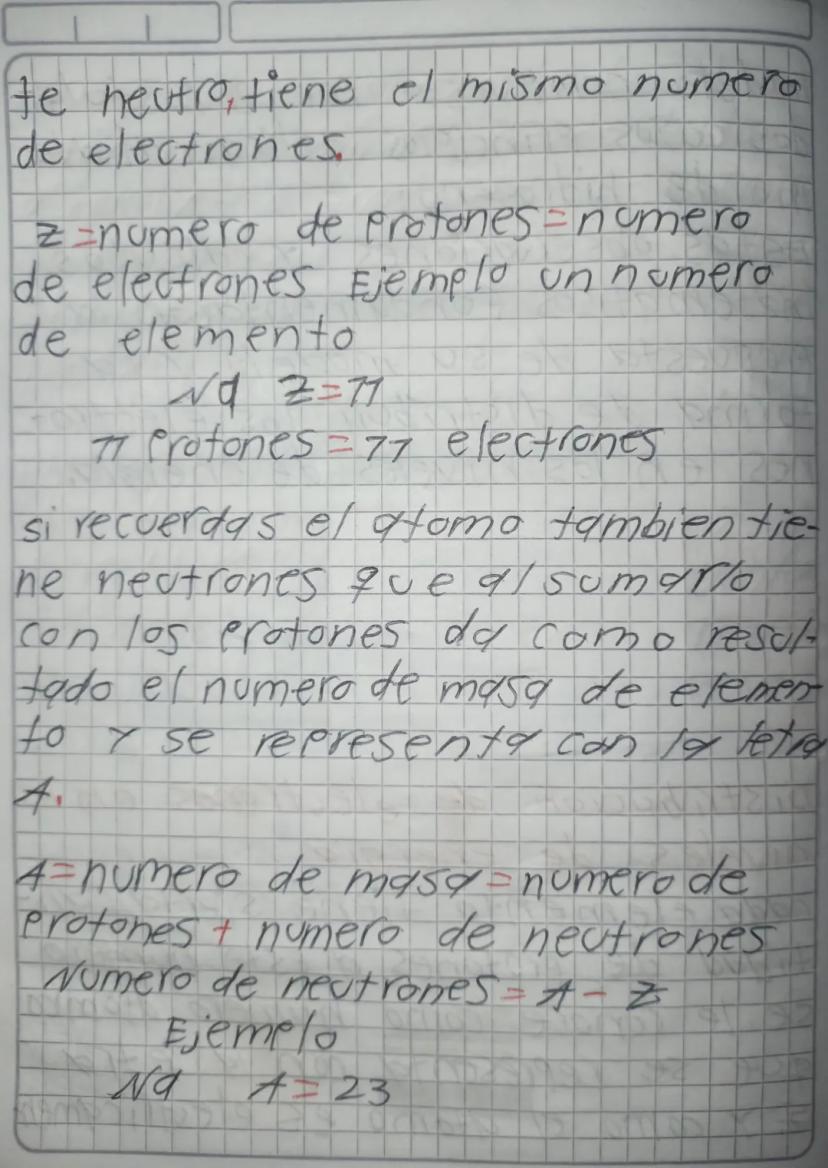 te neutro, tiene el mismo numero
de electrones.
Z=numero de protones=numero
de electrones Ejemplo un numero
de elemento
Na Z=11
11 protones=11 electrones
si recuerdas el atomo tambien tie-
ne neutrones que al sumarlo
con los protones da como resul-
tado el numero de masa de elemen-
to y se representa con la letra
A.
A=numero de masa=numero de
protones + numero de neutrones
Numero de neutrones=A-Z
Ejemplo
Na A=23